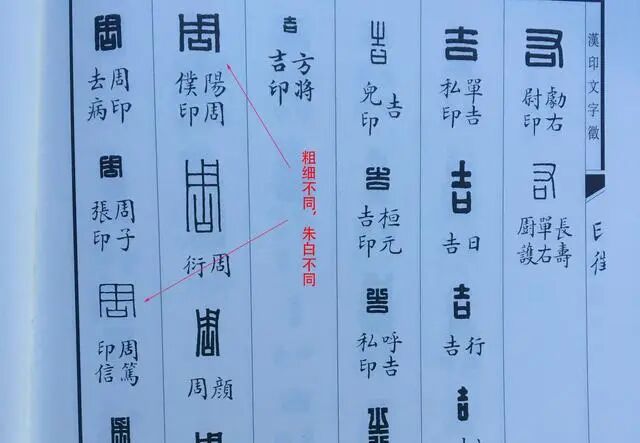 漢印文字徵
右
勮右
尉印
右
長壽
單右
廚護
吉
單吉
私印
吉
日
吉
吉
行
吉
吉
吉
吉
印
吉
桓元
吉印
吉
呼吉
私印
吉
吉
方將
吉印
周
陽周
僕印
周
周
衍
周
顏
周
周
周印
去病
周
周子
張印
周
周篤
印信
周
粗细不同，朱白不同